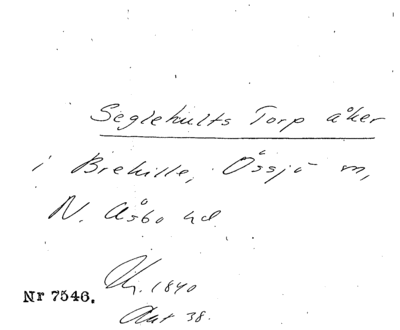 Seglehults Torp åker
i Brehille, Össjö m,
N. Åsbo hd.
Kr. 1840
Nr 7546.
Akt 38.